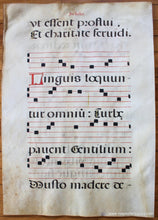 vt essent proflui,
Et charitate feruidi.
Linguis loquun-
tur omniũ: Turbę
pauent Gentilium:
Musto madere de-